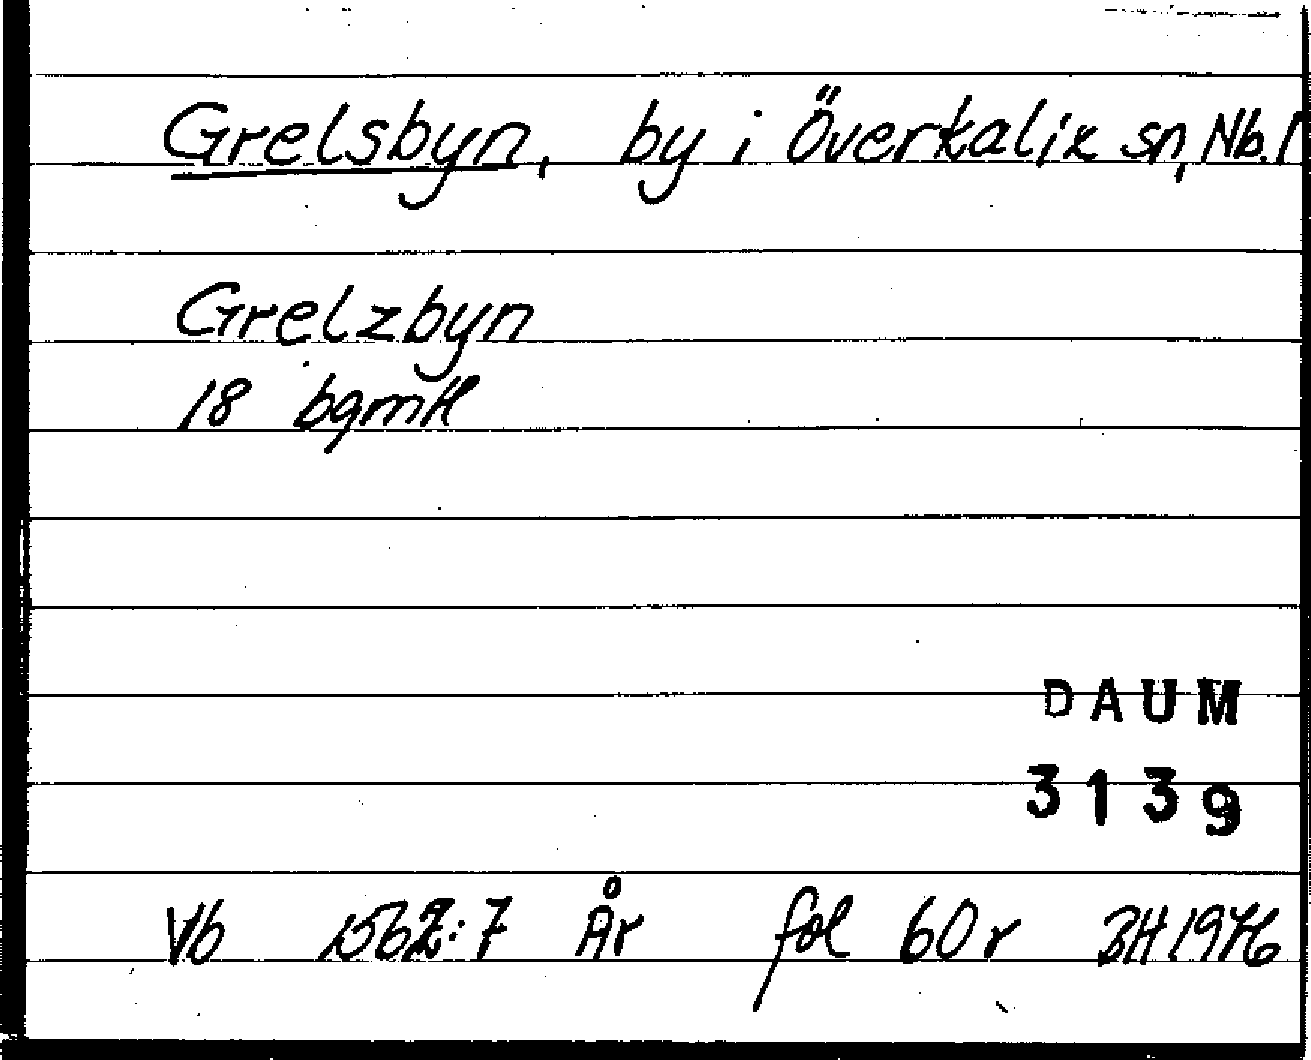 Grelsbyn, by i Överkalix sn, Nb. l
Grelzbyn
18 bgmtl
DAUM
3139
Vb 1562:7 År fol 60 r BH 1976